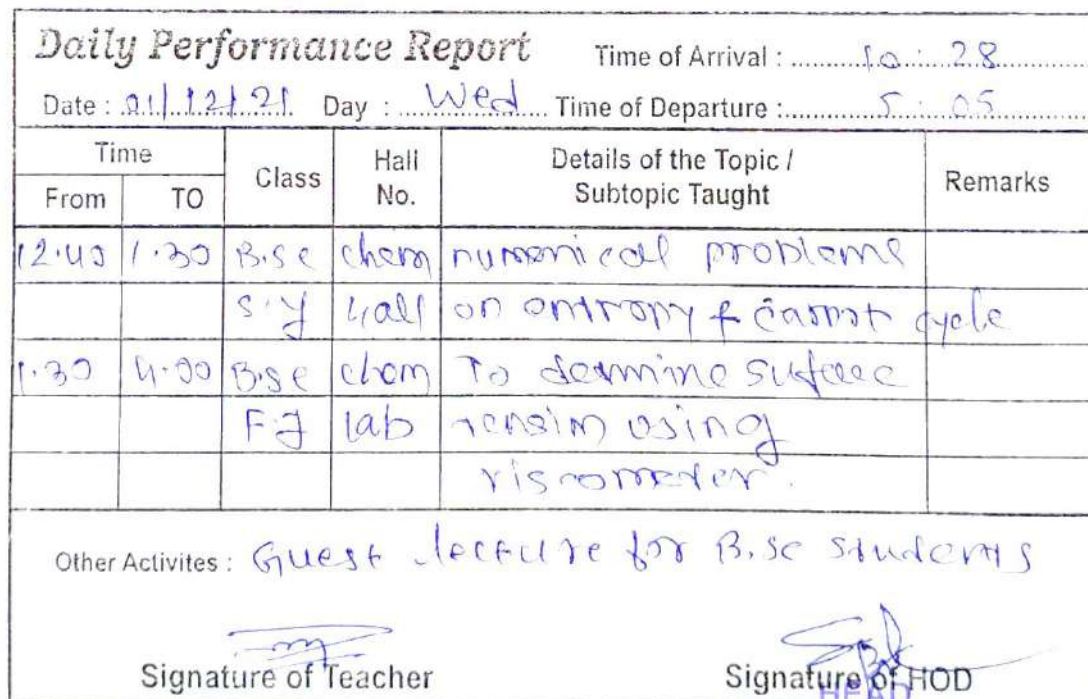 Daily Performance Report Time of Arrival : 10 : 28
Date : 01/12/21 Day : Wed Time of Departure : 5 : 05
Time Class Hall No. Details of the Topic / Subtopic Taught Remarks
From TO
12.40 1.30 B.Sc chem numerical problems
S.y Hall on entropy & carnot cycle
1.30 4.00 B.Sc chem To detmine suface
F.y lab tension using
viscometer.
Other Activites : Guest lecture for B.Sc students
Signature of Teacher Signature of HOD
HEAD